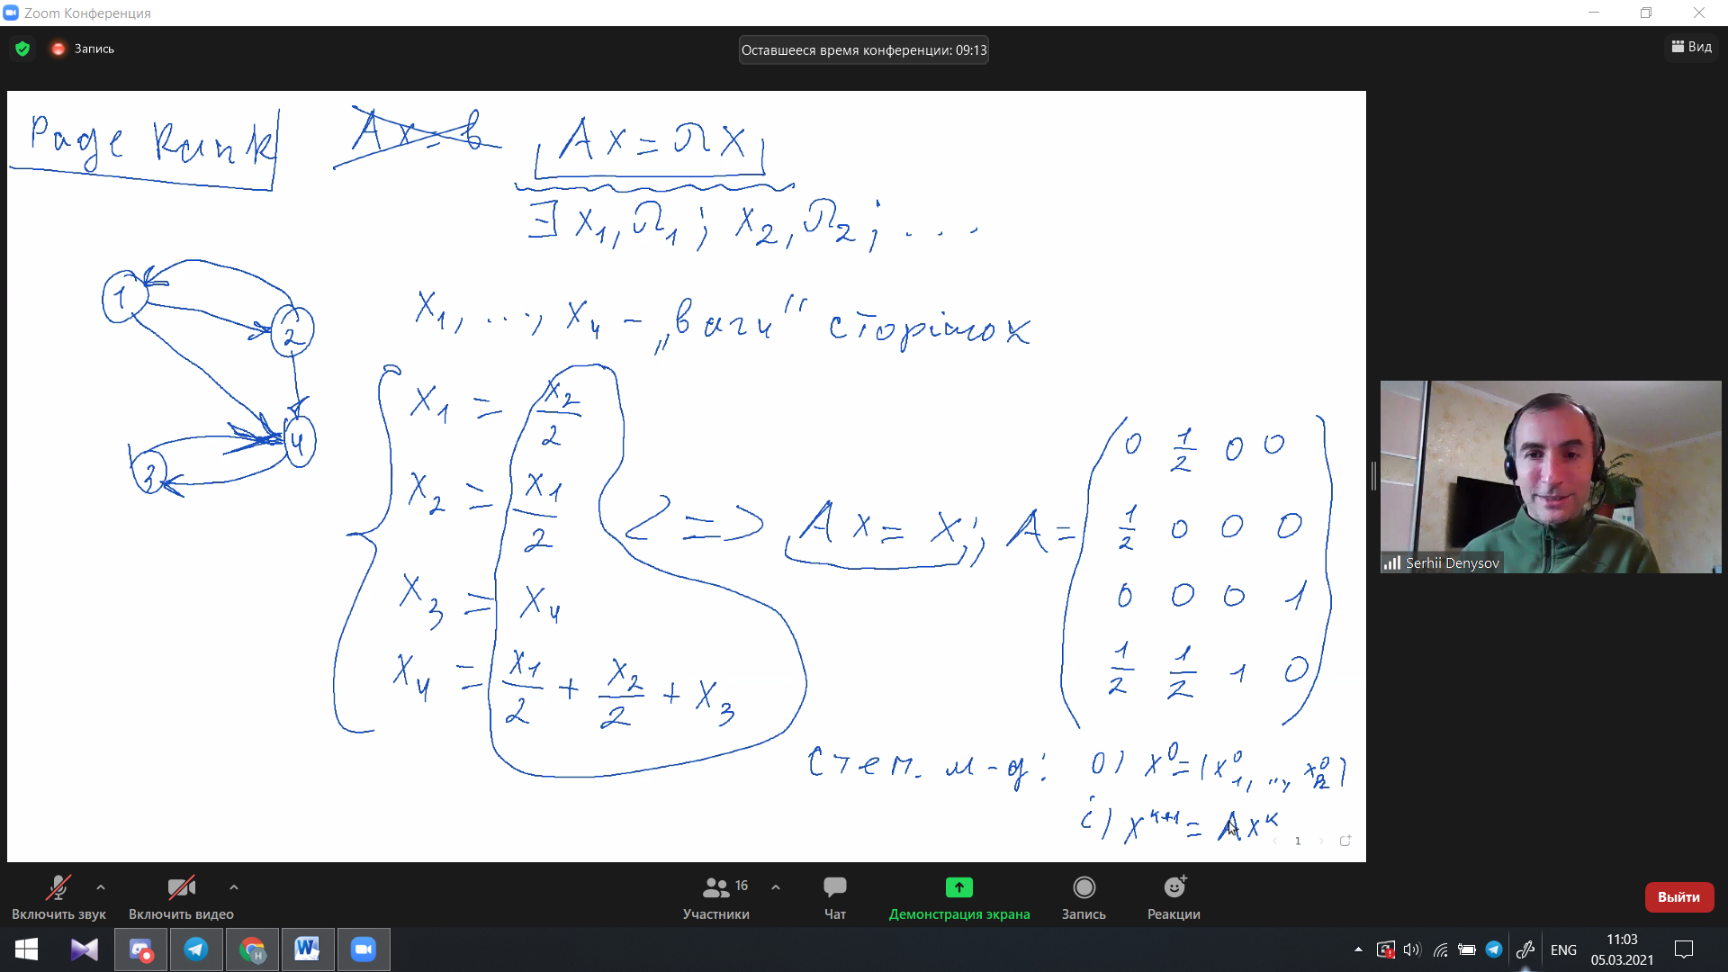 Zoom Конференция
Запись
Оставшееся время конференции: 09:13
Вид
Page Rank
Ax = b
Ax = λx
∃ x₁, λ₁; x₂, λ₂; ...
1
2
4
3
x₁, ..., x₄ – „ваги“ сторінок
x₁ = x₂/2
x₂ = x₁/2
x₃ = x₄
x₄ = x₁/2 + x₂/2 + x₃
<=> Ax = x; A =
0 1/2 0 0
1/2 0 0 0
0 0 0 1
1/2 1/2 1 0
Степ. м-д: 0) x⁰ = (x₁⁰, ..., xₙ⁰)
i) xᵏ⁺¹ = Axᵏ
1
Serhii Denysov
Включить звук
Включить видео
16
Участники
Чат
Демонстрация экрана
Запись
Реакции
Выйти
ENG
11:03
05.03.2021